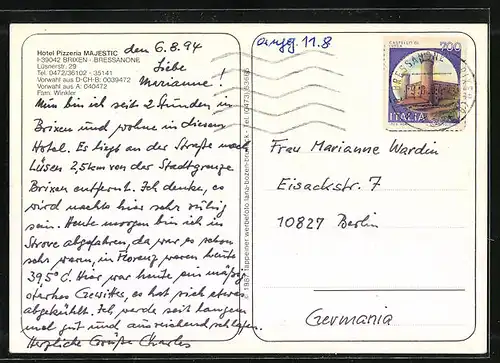 Hotel Pizzeria MAJESTIC
I-39042 BRIXEN · BRESSANONE
Lüsnerstr. 29
Tel. 0472/36102 - 35141
Vorwahl aus D-CH-B: 0039472
Vorwahl aus A: 040472
Fam. Winkler
den 6.8.94
Liebe
Marianne!
Nun bin ich seit 2 Stunden in
Brixen und wohne in diesem
Hotel. Es liegt an der Straße nach
Lüsen 2,5km von der Stadtgrenze
Brixen entfernt. Ich denke, es
wird nachts hier sehr ruhig
sein. Heute morgen bin ich in
abgefahren, da war es schon
sehr warm, in Florenz waren heute
39,5°C. Hier war heute ein mäßig
starkes Gewitter, es hat sich etwas
abgekühlt. Ich werde seit langem
mal gut und ausreichend schlafen.
Herzliche Grüße Charles
© 1987 tappeiner werbefoto lana-bozen-brixen - Tel. (0473)
ang. 11.8
CASTELLO DI
700
ITALIA
BRESSANONE
Frau Marianne Wardin
Eisackstr. 7
10827 Berlin
Germania